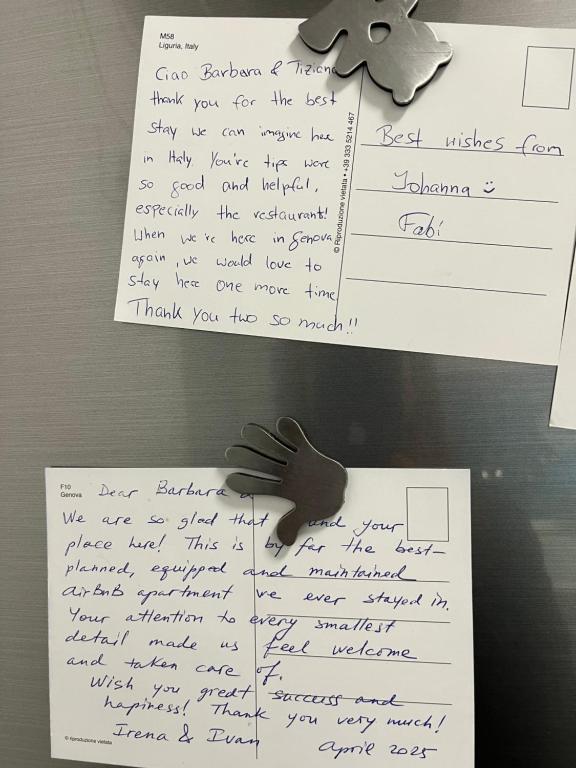 M58
Liguria, Italy
Ciao Barbara & Tiziana
thank you for the best
stay we can imagine here
in Italy. You're tips were
so good and helpful,
especially the restaurant!
When we're here in Genova
again, we would love to
stay here one more time
Thank you two so much!!
© Riproduzione vietata • +39 333 5214 467
Best wishes from
Johanna
Fabi
F10
Genova
Dear Barbara
We are so glad that your
place here! This is by far the best-
planned, equipped and maintained
airBnB apartment we ever stayed in.
Your attention to every smallest
detail made us feel welcome
and taken care of.
Wish you great success and
hapiness! Thank you very much!
Irena & Ivan
April 2025
© riproduzione vietata